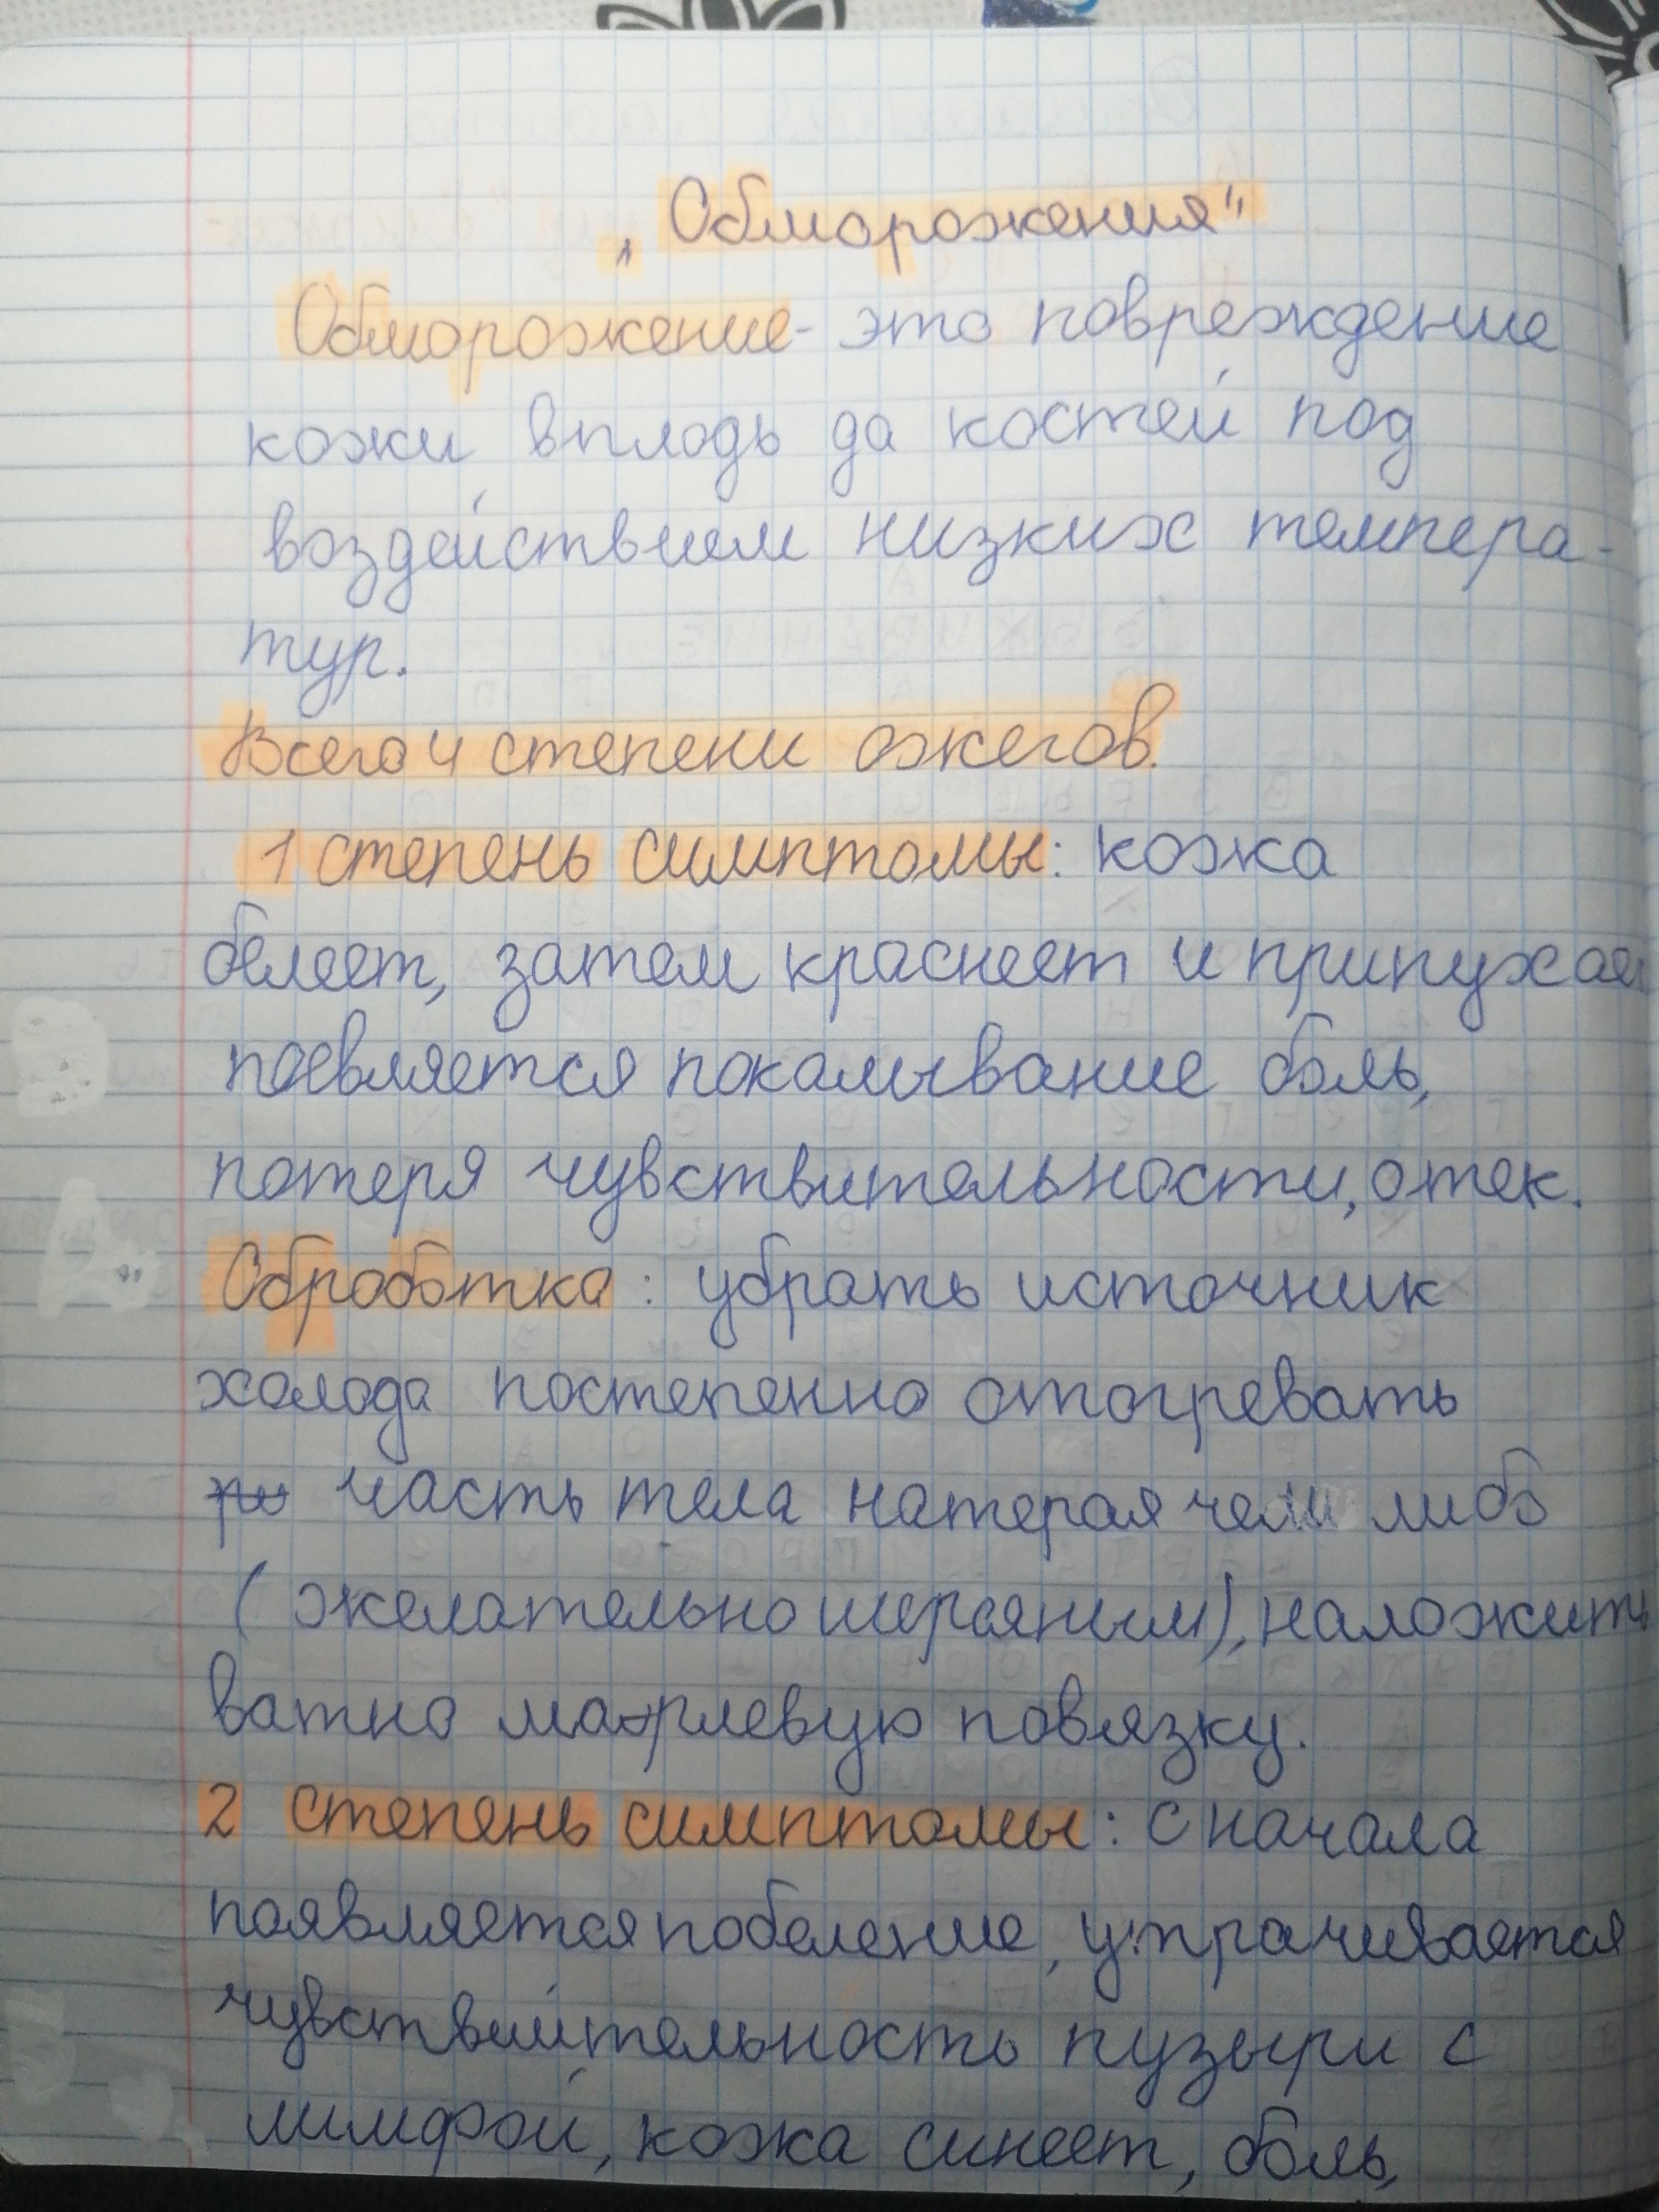 „Обморожения"
Обморожение- это повреждение
кожи вплодь да костей под
воздействием низких темпера-
тур.
Всего 4 степени ожегов.
1 степень симптомы: кожа
белеет, затем краснеет и припухает
поевляется покалывание боль,
потеря чувствительности, отек.
Обработка: убрать источник
холода постепенно отогревать
часть тела натерая чем либо
(желательно шерсяным), наложить
ватно марлевую повязку.
2 степень симптомы: с начала
появляется побеление, утрачивается
чувствийтельность пузыри с
лимфой, кожа синеет, боль,